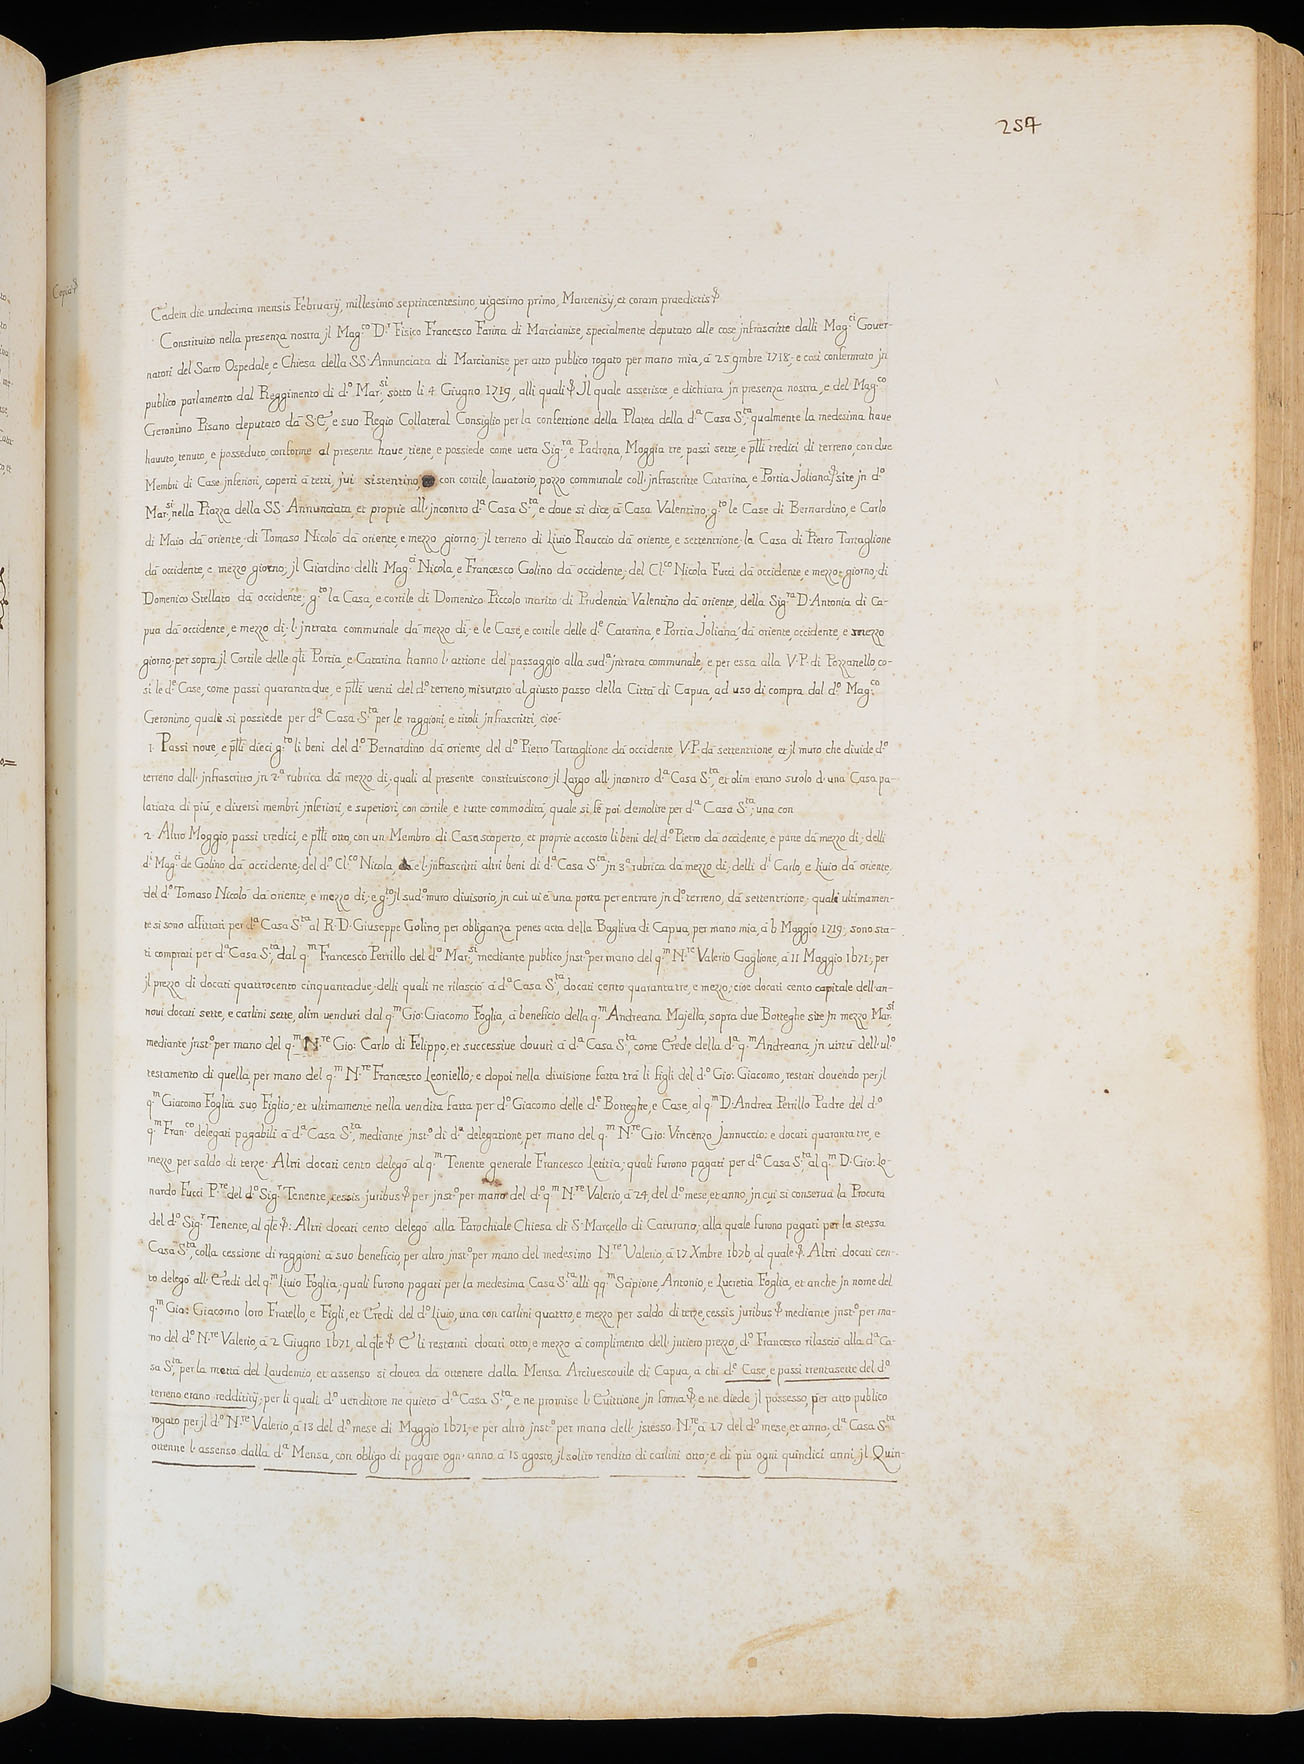 257
Copia
Eadem die undecima mensis February, millesimo septincentesimo, uigesimo primo, Martenisij, et coram praedictis
Constituito nella presenza nostra jl Mag.co D.r Fisico Francesco Farina di Marcianise, specialmente deputato alle cose jnfrascritte dalli Mag.ci Gouer-
natori del Sacro Ospedale, e Chiesa della SS. Annunciata di Marcianise, per atto publico rogato per mano mia, à 25 9mbre 1718; e così confermato jn
publico parlamento dal Reggimento di d.o Mar.si, sotto li 4 Giugno 1719, alli quali Jl quale asserisce, e dichiara jn presenza nostra, e del Mag.co
Geronimo Pisano deputato dà S.E, e suo Regio Collateral Consiglio per la confettione della Platea della d.a Casa S.ta, qualmente la medesima haue
hauuto, tenuto, e posseduto, conforme al presente haue, tiene, e possiede come uera Sig.ra, e Padrona, Moggia tre, passi sette, e p̄lli tredici di terreno, con due
Membri di Case jnferiori, coperti à tetti, jui sistentino con cortile, lauatorio, pozzo communale coll' jnfrascritte Catarina, e Portia Joliana, site jn d.o
Mar.si nella Piazza della SS. Annunciata, et proprie all' jncontro d.a Casa S.ta, e doue si dice, à Casa Valentino; g.to le Case di Bernardino, e Carlo
di Maio dà oriente, di Tomaso Nicolò dà oriente, e mezzo giorno; jl terreno di Liuio Rauccio dà oriente, e settentrione; la Casa di Pietro Tartaglione
dà occidente, e mezzo giorno; jl Giardino delli Mag.ci Nicola, e Francesco Golino dà occidente; del Cl.co Nicola Fucci dà occidente, e mezzo giorno, di
Domenico Stellato dà occidente; g.to la Casa, e cortile di Domenico Piccolo marito di Prudentia Valentino dà oriente, della Sig.ra D. Antonia di Ca-
pua dà occidente, e mezzo dì; l' jntrata communale dà mezzo dì; e le Case, e cortile delle d.e Catarina, e Portia Joliana dà oriente, occidente, e mezzo
giorno; per sopra jl Cortile delle q̄li Portia, e Catarina hanno l' attione del passaggio alla sud.a jntrata communale, e per essa alla V.P. di Pozzanello, co-
sì le d.e Case, come passi quaranta due, e p̄lli uenti del d.o terreno, misurato al giusto passo della Città di Capua, ad uso di compra dal d.o Mag.co
Geronimo, quale si possiede per d.a Casa S.ta per le raggioni, e titoli jnfrascritti, cioè
1. Passi noue, e p̄lli dieci g.to li beni del d.o Bernardino dà oriente, del d.o Pietro Tartaglione dà occidente, V.P. dà settentrione, et jl muro che diuide d.o
terreno dall' jnfrascritto jn 2.a rubrica dà mezzo dì; quali al presente constituiscono jl Largo all' jncontro d.a Casa S.ta, et olim erano suolo d' una Casa pa-
latiata di più, e diuersi membri jnferiori, e superiori, con cortile, e tutte commodità, quale si fè poi demolire per d.a Casa S.ta; una con
2. Altro Moggio, passi tredici, e p̄lli otto, con un Membro di Casa scoperto, et proprie accosto li beni del d.o Pietro dà occidente, e parte dà mezzo dì; delli
d.i Mag.ci de Golino dà occidente; del d.o Cl.co Nicola, e l' jnfrascritti altri beni di d.a Casa S.ta jn 3.a rubrica dà mezzo dì; delli d.i Carlo, e Liuio dà oriente,
del d.o Tomaso Nicolò dà oriente, e mezzo dì; e g.to jl sud.o muro diuisorio, jn cui ui è una porta per entrare jn d.o terreno, dà settentrione; quali ultimamen-
te si sono affittati per d.a Casa S.ta al R.D. Giuseppe Golino, per obliganza penes acta della Bagliua di Capua, per mano mia, à 6 Maggio 1719; sono sta-
ti comprati per d.a Casa S.ta, dal q.m Francesco Petrillo del d.o Mar.si, mediante publico jnst.o per mano del q.m N.re Valerio Gaglione, à 11 Maggio 1671; per
jl prezzo di docati quattrocento cinquantadue; delli quali ne rilasciò à d.a Casa S.ta, docati cento quaranta tre, e mezzo; cioè docati cento capitale dell' an-
noui docati sette, e carlini sette, olim uenduti dal q.m Gio: Giacomo Foglia, à beneficio della q.m Andreana Majella, sopra due Botteghe site jn mezzo Mar.si
mediante jnst.o per mano del q.m N.re Gio: Carlo di Felippo; et successiue douuti à d.a Casa S.ta, come Erede della d.a q.m Andreana, jn uirtù dell' ul.o
testamento di quella, per mano del q.m N.re Francesco Leoniello; e dopoi nella diuisione fatta trà li figli del d.o Gio: Giacomo, restati douendo per jl
q.m Giacomo Foglia suo Figlio; et ultimamente nella uendita fatta per d.o Giacomo delle d.e Botteghe, e Case, al q.m D. Andrea Petrillo Padre del d.o
q.m Fran.co delegati pagabili à d.a Casa S.ta, mediante jnst.o di d.a delegatione, per mano del q.m N.re Gio: Vincenzo Jannuccio: e docati quaranta tre, e
mezzo per saldo di terze. Altri docati cento delegò al q.m Tenente generale Francesco Letitia; quali furono pagati per d.a Casa S.ta, al q.m D. Gio: Lo-
nardo Fucci P.re del d.o Sig.r Tenente, cessis juribus per jnst.o per mano del d.o q.m N.re Valerio, à 24, del d.o mese, et anno, jn cui si conserua la Procura
del d.o Sig.r Tenente, al q̄le: Altri docati cento delegò alla Parochiale Chiesa di S. Marcello di Caturano; alla quale furono pagati per la stessa
Casa S.ta, colla cessione di raggioni à suo beneficio, per altro jnst.o per mano del medesimo N.re Valerio, à 17 Xmbre 1676, al quale. Altri docati cen-
to delegò all' Eredi del q.m Liuio Foglia; quali furono pagati per la medesima Casa S.ta alli qq.m Scipione, Antonio, e Lucretia Foglia, et anche jn nome del
q.m Gio: Giacomo loro Fratello, e Figli, et Eredi del d.o Liuio, una con carlini quattro, e mezzo per saldo di terze, cessis juribus mediante jnst.o per ma-
no del d.o N.re Valerio, à 2 Giugno 1671, al q̄le E li restanti docati otto, e mezzo à complimento dell' jntiero prezzo, d.o Francesco rilasciò alla d.a Ca-
sa S.ta, per la mettà del Laudemio, et assenso si douea dà ottenere dalla Mensa Arciuescouile di Capua, à chi d.e Case, e passi trentasette del d.o
terreno erano redditìtij; per li quali d.o uenditore ne quietò d.a Casa S.ta, e ne promise l' Euittione jn forma, e ne diede jl possesso, per atto publico
rogato per jl d.o N.re Valerio, à 13 del d.o mese di Maggio 1671; e per altro jnst.o per mano dell' jstesso N.re, à 17 del d.o mese, et anno, d.a Casa S.ta
ottenne l' assenso dalla d.a Mensa, con obligo di pagare ogn' anno, à 15 agosto, jl solito rendito di carlini otto; e di più ogni quindici anni, jl Quin-